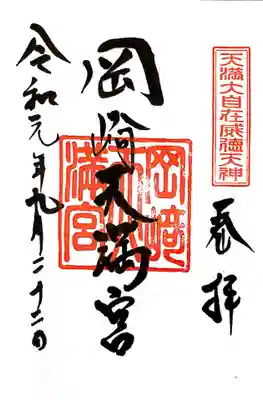 天満大自在威徳天神
奉拝
岡崎天満宮
岡崎天満宮
令和元年九月二十二日